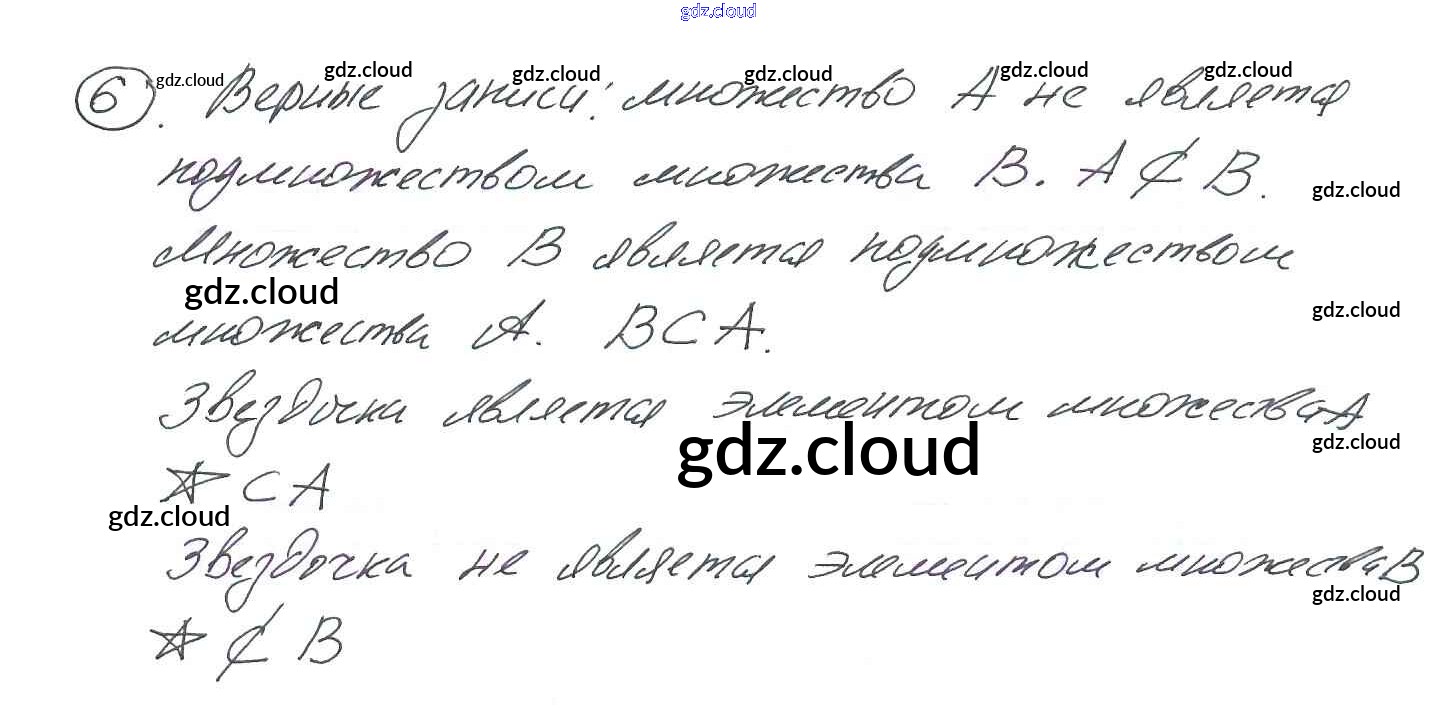 gdz.cloud
6. gdz.cloud Верные gdz.cloud записи: gdz.cloud множество gdz.cloud А не gdz.cloud является gdz.cloud
подмножеством множества В. А ⊄ В. gdz.cloud
Множество В является подмножеством
gdz.cloud
множества А. В ⊂ А. gdz.cloud
Звездочка является элементом множества А
gdz.cloud gdz.cloud
☆ ⊂ А
gdz.cloud
Звездочка не является элементом множества В
gdz.cloud
☆ ⊄ В